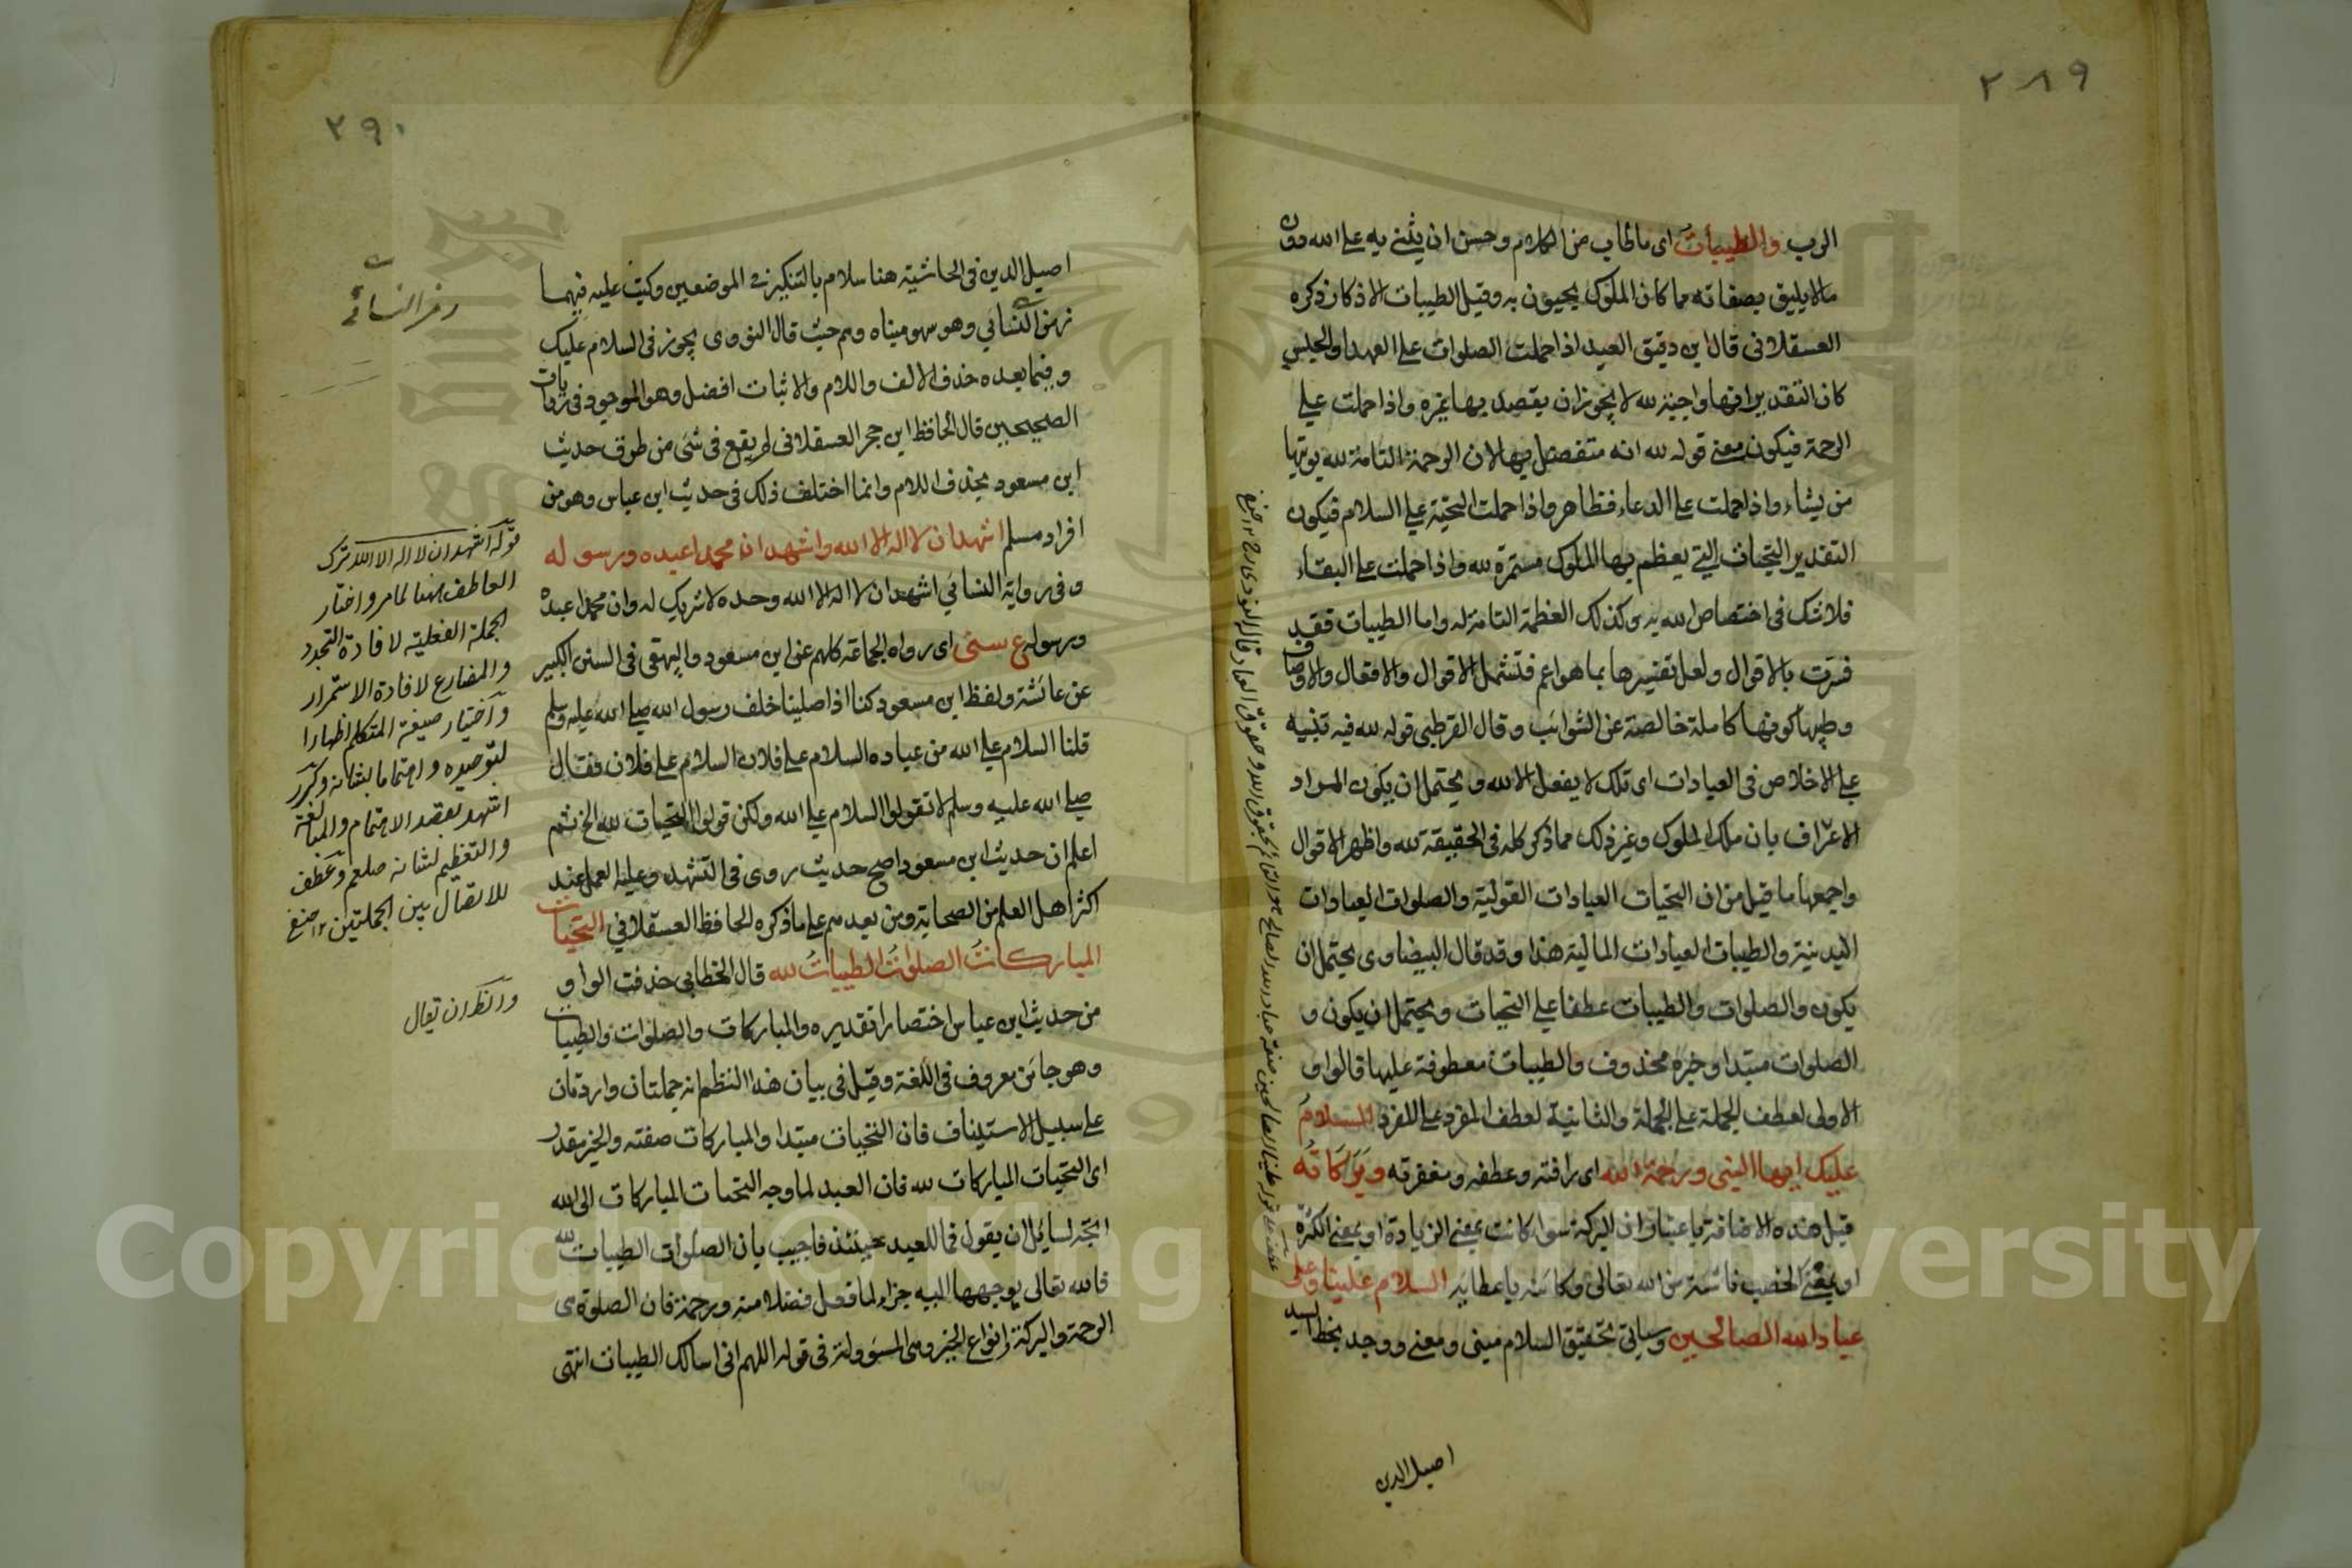 ٢٨٩
الرب والطيبات اى ما طاب من الكلام وحسن ان يثنى به على الله دون
مالا يليق بصفاته مما كان الملوك يحيون به وقيل الطيبات الاذكار ذكره
العسقلانى قال ابن دقيق العيد اذا حملت الصلوات على العهد او الجنس
كان التقدير انها واجبة لله لا يجوز ان يقصد بها غيره واذا حملت على
الرحمة فيكون معنى قوله لله انه متفضل بها لان الرحمة التامة لله يوتيها
من يشاء واذا حملت على الدعاء فظاهر واذا حملت التحية على السلام فيكون
التقدير التحيات التى يعظم بها الملوك مستمرة لله واذا حملت على البقاء
فلا شك فى اختصاص الله به وكذلك العظمة التامة له واما الطيبات فقد
فسرت بالاقوال ولعل تفسيرها بما هو اعم فتشمل الاقوال والافعال والاوصاف
وطيبها كونها كاملة خالصة عن الشوائب وقال القرطبى قوله لله فيه تنبيه
على الاخلاص فى العبادات اى تلك لا يفعل الا لله ويحتمل ان يكون المراد
الاعتراف بان ملك الملوك وغير ذلك مما ذكر كله فى الحقيقة لله واظهر الاقوال
واجمعها ما قيل من ان التحيات العبادات القولية والصلوات العبادات
البدنية والطيبات العبادات المالية هذا وقد قال البيضاوى يحتمل ان
يكون والصلوات والطيبات عطفا على التحيات ويحتمل ان يكون و
الصلوات مبتدا وخبره محذوف والطيبات معطوفة عليها فالواو
الاولى لعطف الجملة على الجملة والثانية لعطف المفرد على المفرد السلام
عليك ايها النبى ورحمة الله اى رافته وعطفه ومغفرته وبركاته
قيل هذه الاضافة باعتبار ان البركة سواء كانت بمعنى الزيادة او بمعنى الكثرة
او بمعنى الخصب ناشئة من الله تعالى وكائنة باعطائه السلام علينا وعلى
عباد الله الصالحين وسياتى تحقيق السلام مبنى ومعنى ووجد بخط السيد
اصيل الدين
٢٩٠
اصيل الدين فى الحاشية هنا سلام بالتنكير فى الموضعين وكتب عليه فيهما
رمز النسائي وهو سهو مبناه وهم حيث قال النووى يجوز فى السلام عليك
وفيما بعده حذف الالف واللام والاثبات افضل وهو الموجود فى روايات
الصحيحين قال الحافظ ابن حجر العسقلانى لم يقع فى شئ من طرق حديث
ابن مسعود بحذف اللام وانما اختلف ذلك فى حديث ابن عباس وهو من
افراد مسلم اشهد ان لا اله الا الله واشهد ان محمدا عبده ورسوله
وفى رواية النسائي اشهد ان لا اله الا الله وحده لا شريك له وان محمدا عبده
ورسوله ع سنى اى رواه الجماعة كلهم عن ابن مسعود والبيهقى فى السنن الكبير
عن عائشة ولفظ ابن مسعود كنا اذا صلينا خلف رسول الله صلى الله عليه وسلم
قلنا السلام على الله من عباده السلام على فلان السلام على فلان فقال
صلى الله عليه وسلم لا تقولوا السلام على الله ولكن قولوا التحيات لله الخ ثم
اعلم ان حديث ابن مسعود اصح حديث روى فى التشهد وعليه العمل عند
اكثر اهل العلم من الصحابة ومن بعدهم على ما ذكره الحافظ العسقلاني التحيات
المباركات الصلوات الطيبات لله قال الخطابى حذفت الواو
من حديث ابن عباس اختصارا تقديره والمباركات والصلوات والطيبات
وهو جائز معروف فى اللغة وقيل فى بيان هذا النظم انه جملتان واردتان
على سبيل الاستيناف فان التحيات مبتدا والمباركات صفته والخبر مقدر
اى التحيات المباركات لله فان العبد لما وجه التحيات المباركات الى الله
اتجه لسائل ان يقول فما للعبد حينئذ فاجيب بان الصلوات الطيبات لله
فالله تعالى يوجهها اليه جزاء لما فعل فضلا منه ورحمة فان الصلوة هى
الرحمة والبركة وانواع الخير وهى المسؤولة فى قوله اللهم انى اسالك الطيبات انتهى
رمز النسائي
قوله اشهد ان لا اله الا الله ترك
العاطف ههنا لما مر واختار
الجملة الفعلية لافادة التجدد
والمضارع لافادة الاستمرار
واختيار صيغة المتكلم اظهارا
لتوحيده واهتماما بشانه وكرر
اشهد بقصد الاهتمام والمبالغة
والتعظيم لشانه صلعم وعطف
للاتصال بين الجملتين ١٢
والظ ان يقال
Copyright © King Saud University